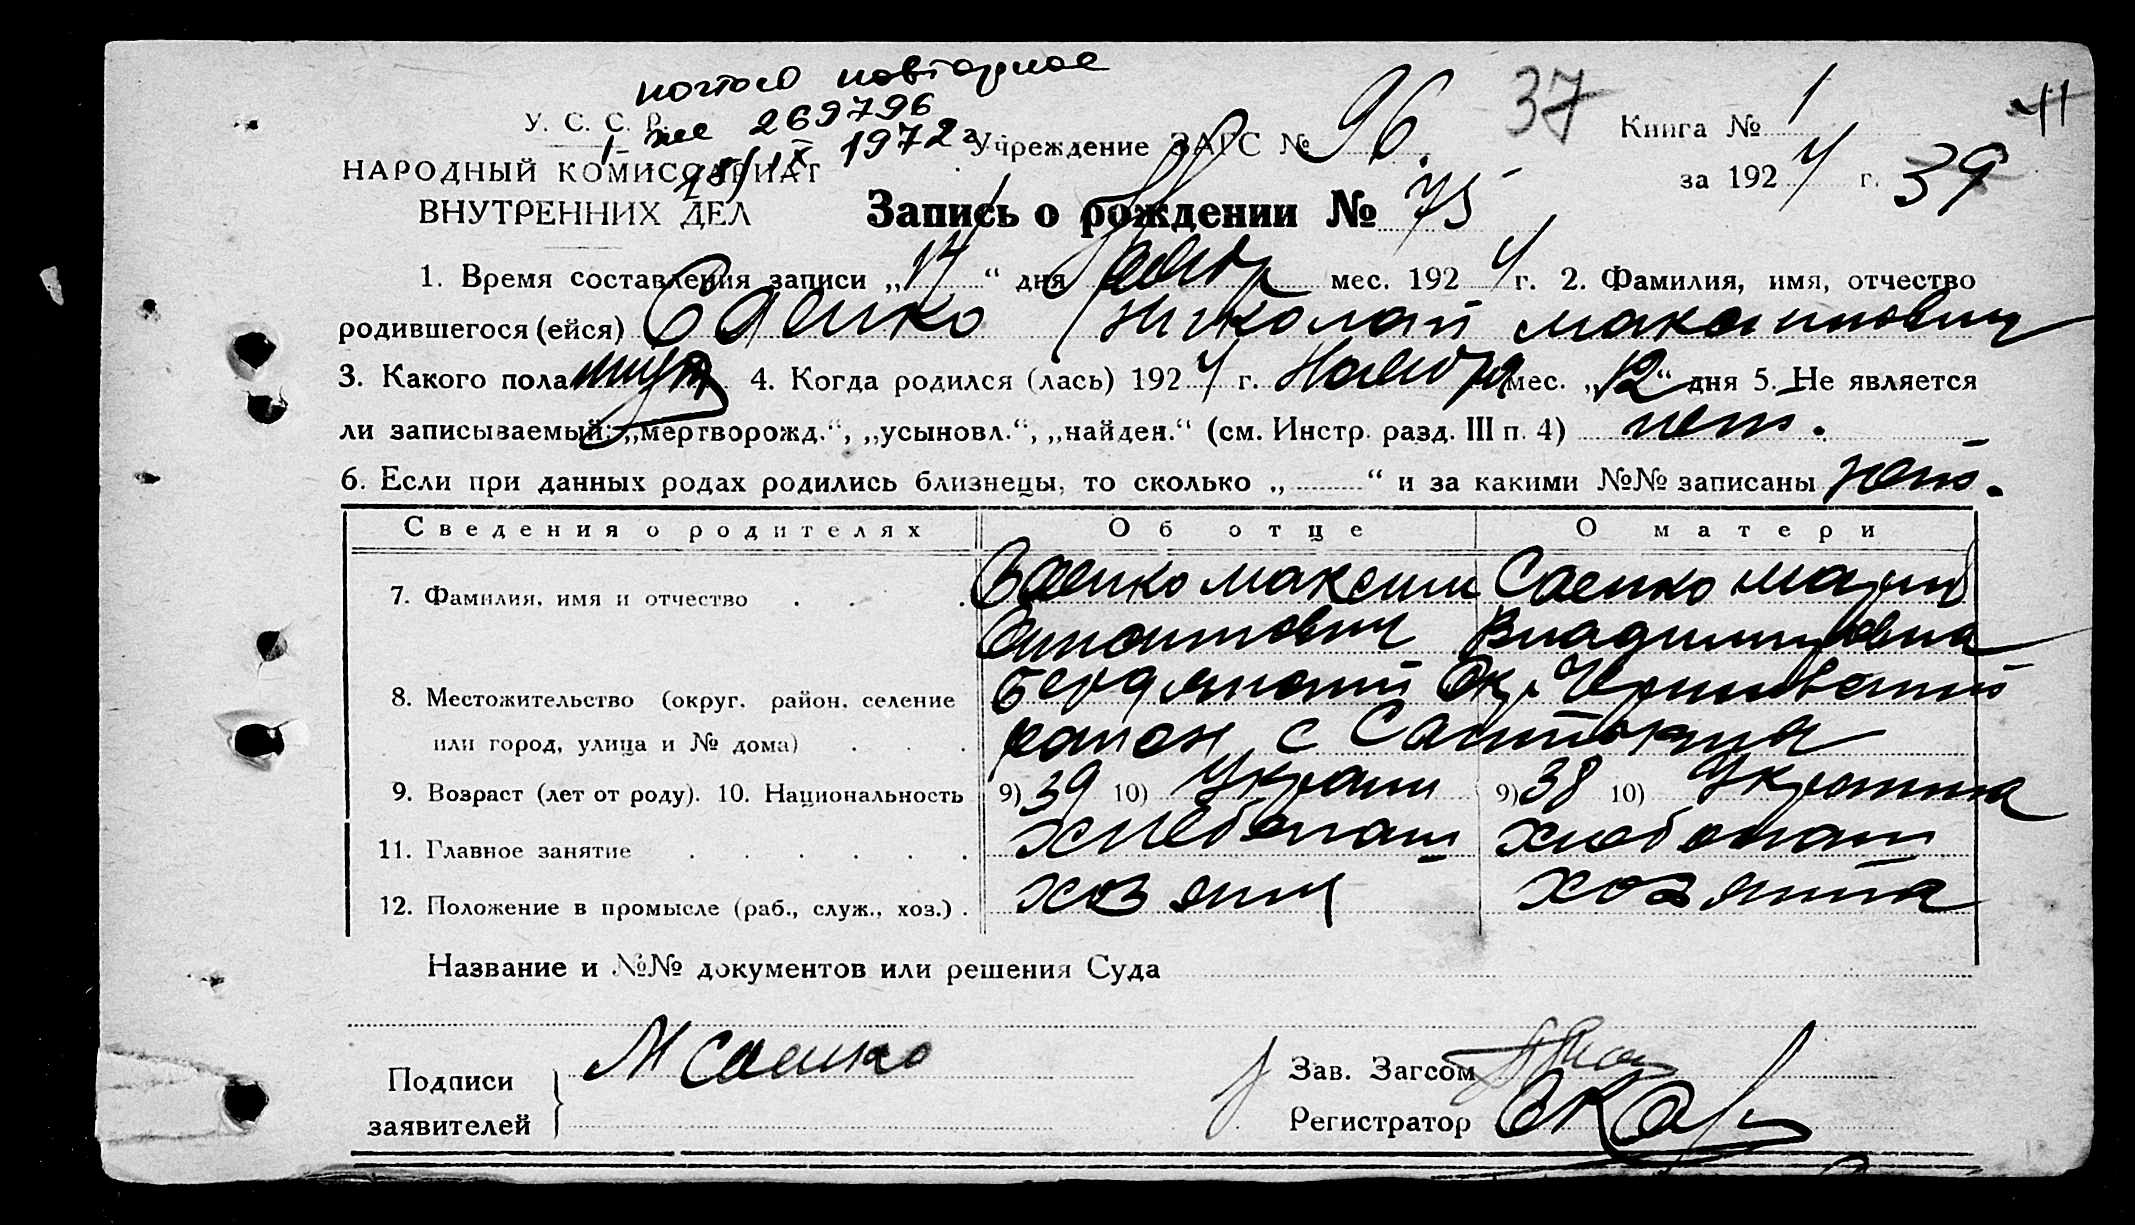 повторное
У. С. С. Р.
269796
1972 г.
Учреждение ЗАГС № 96.
37
Книга № 1
41
НАРОДНЫЙ КОМИССАРИАТ
ВНУТРЕННИХ ДЕЛ
за 1924 г.
39
Запись о рождении № 75
1. Время составления записи „14“ дня Ноября мес. 1924 г. 2. Фамилия, имя, отчество
родившегося (ейся) Саенко Николай Максимович
3. Какого пола муж 4. Когда родился (лась) 1924 г. Ноября мес. „12“ дня 5. Не является
ли записываемый: „мертворожд.“, „усыновл.“, „найден.“ (см. Инстр. разд. III п. 4) нет.
6. Если при данных родах родились близнецы, то сколько „ “ и за какими №№ записаны нет.
Сведения о родителях Об отце О матери
7. Фамилия, имя и отчество Саенко Максим Саенко Мария
Владимировна
8. Местожительство (округ. район. селение Бердянский Ок. Черниговский
или город, улица и № дома) район с
9. Возраст (лет от роду). 10. Национальность 9) 39 10) Украин 9) 38 10) Украинка
11. Главное занятие хлебопаш хлебопаш
12. Положение в промысле (раб., служ., хоз.) хозяин хозяйка
Название и №№ документов или решения Суда
Подписи
заявителей
М Саенко
Зав. Загсом
Регистратор